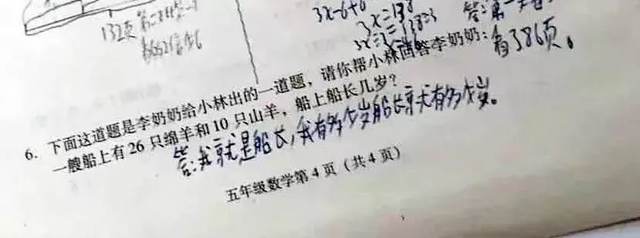 132页
3x-6+6
3x=198
看了386页。
6. 下面这道题是李奶奶给小林出的一道题，请你帮小林回答李奶奶：
一艘船上有26只绵羊和10只山羊，船上船长几岁？
答：我就是船长，我有多少岁船长就有多少岁。
五年级数学第4页（共4页）